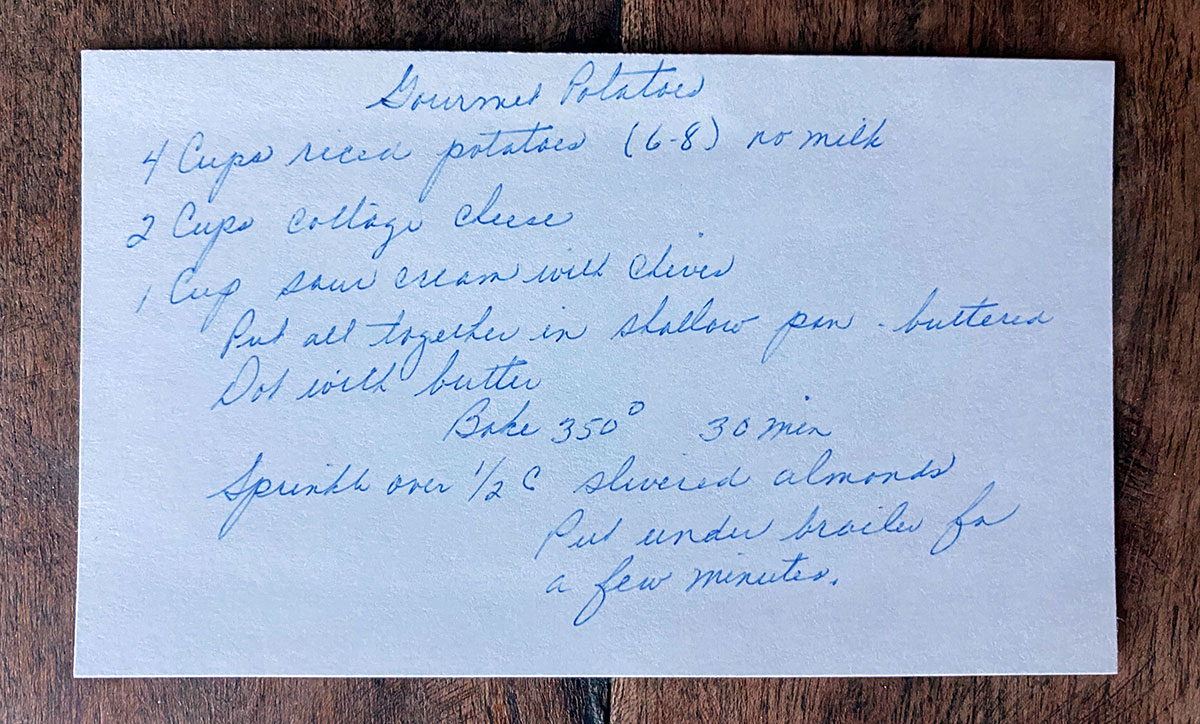 Gourmet Potatoes
4 Cups riced potatoes (6-8) no milk
2 Cups cottage cheese
1 Cup sour cream with chives
Put all together in shallow pan - buttered
Dot with butter
Bake 350° 30 min
Sprinkle over 1/2 C slivered almonds
Put under broiler for
a few minutes.